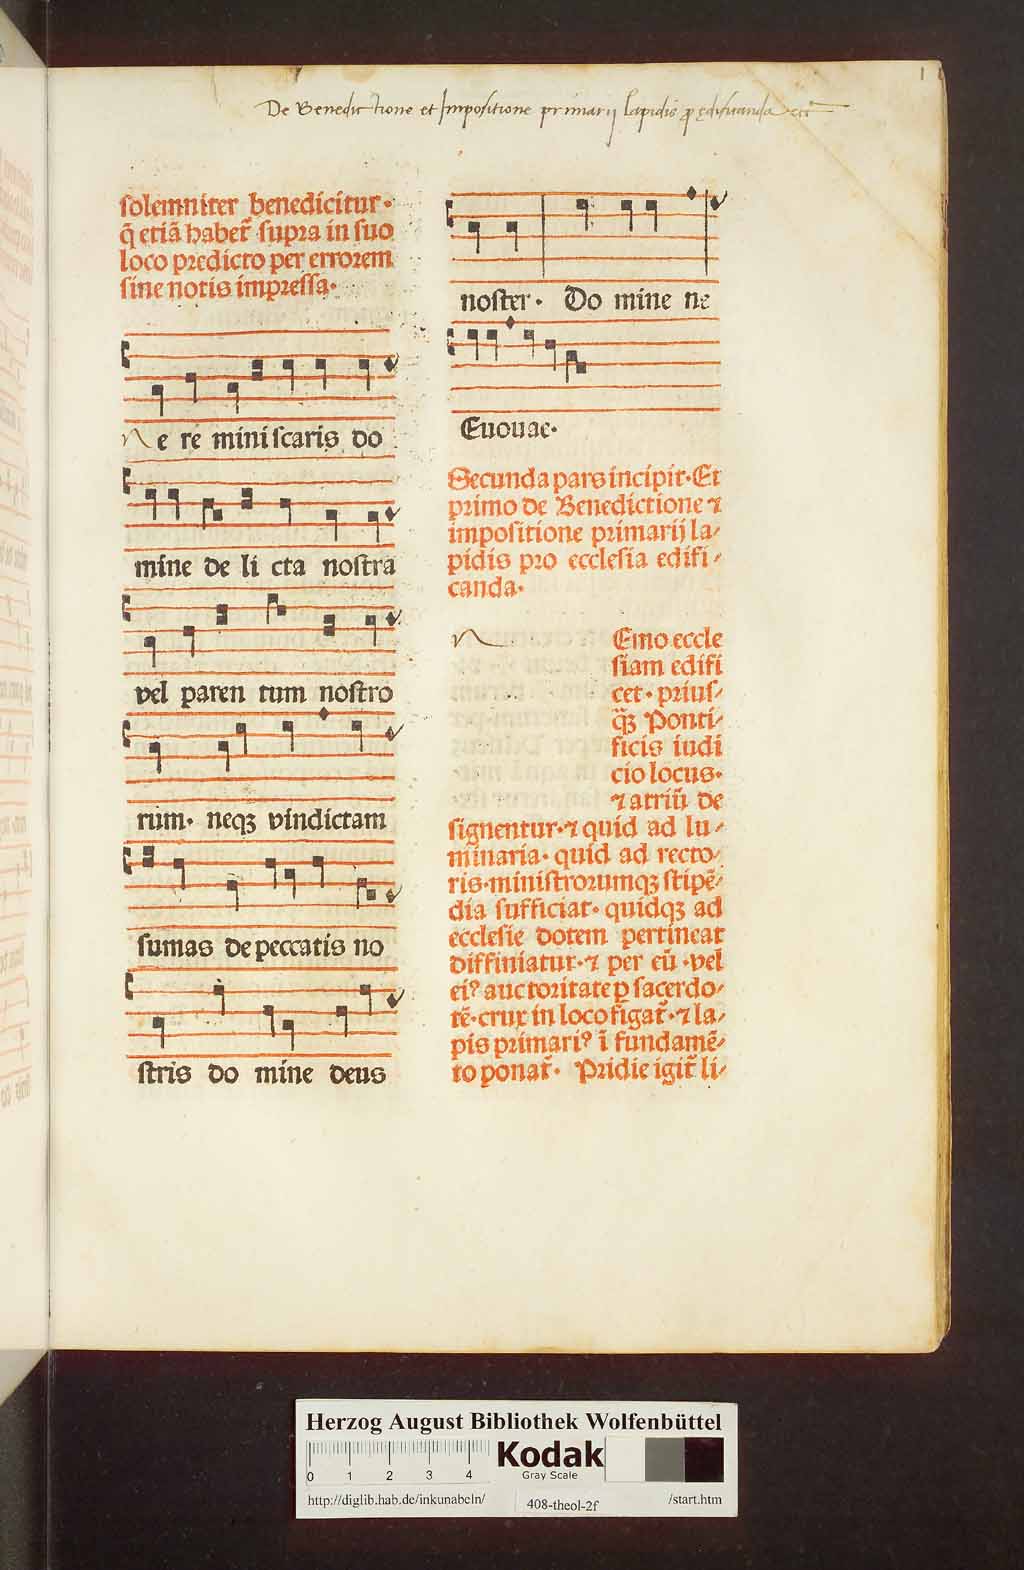 De Benedictione et Impositione primarij lapidis ꝓ ędificanda eccᵃ
solemniter benedicitur·
q̄ etiā habet̄ supra in suo
loco predicto per errorem
sine notis impressa·
Ne re miniscaris do
mine de li cta nostra
vel paren tum nostro
rum· neqꝫ vindictam
sumas de peccatis no
stris do mine deus
noster· Do mine ne
Euouae·
Secunda pars incipit·Et
primo de Benedictione ⁊
impositione primarij la⸗
pidis pro ecclesia edifi⸗
canda·
N Emo eccle
siam edifi
cet· prius⸗
q̄ꝫ Ponti⸗
ficis iudi
cio locus·
⁊ atriū de
signentur·⁊ quid ad lu⸗
minaria· quid ad recto⸗
ris·ministrorumqꝫ stipē⸗
dia sufficiat· quidqꝫ ad
ecclesie dotem pertineat
diffiniatur·⁊ per eū·vel
eiꝰ auctoritate ꝑ sacerdo⸗
tē·crux in loco figat̄·⁊ la⸗
pis primariꝰ ī fundamē⸗
to ponat̄· Pridie igit̄ li⸗
Herzog August Bibliothek Wolfenbüttel
0 1 2 3 4
Kodak
Gray Scale
http://diglib.hab.de/inkunabeln/ 408-theol-2f /start.htm